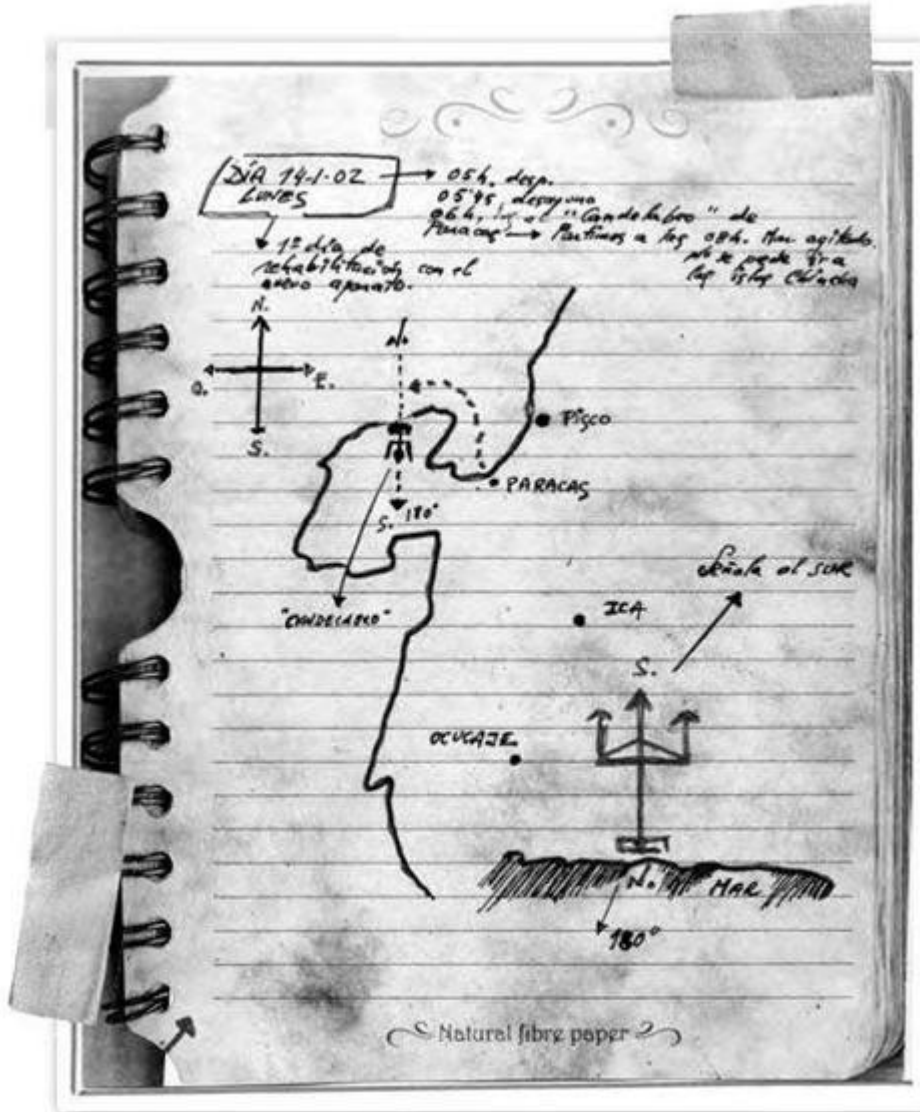 DÍA 14-1-02
LUNES
05h, desp.
05'45, desayuno
06h, "Candelabro" de
Paracas Partimos a las 08h. Mar agitado.
No se puede ir a
las islas Chincha
1º día de
rehabilitación con el
nuevo aparato.
N.
O. E.
S.
N.
PISCO
PARACAS
S. 180º
"CANDELABRO"
Señala al SUR
ICA
S.
OCUCAJE
N. MAR
180º
Natural fibre paper